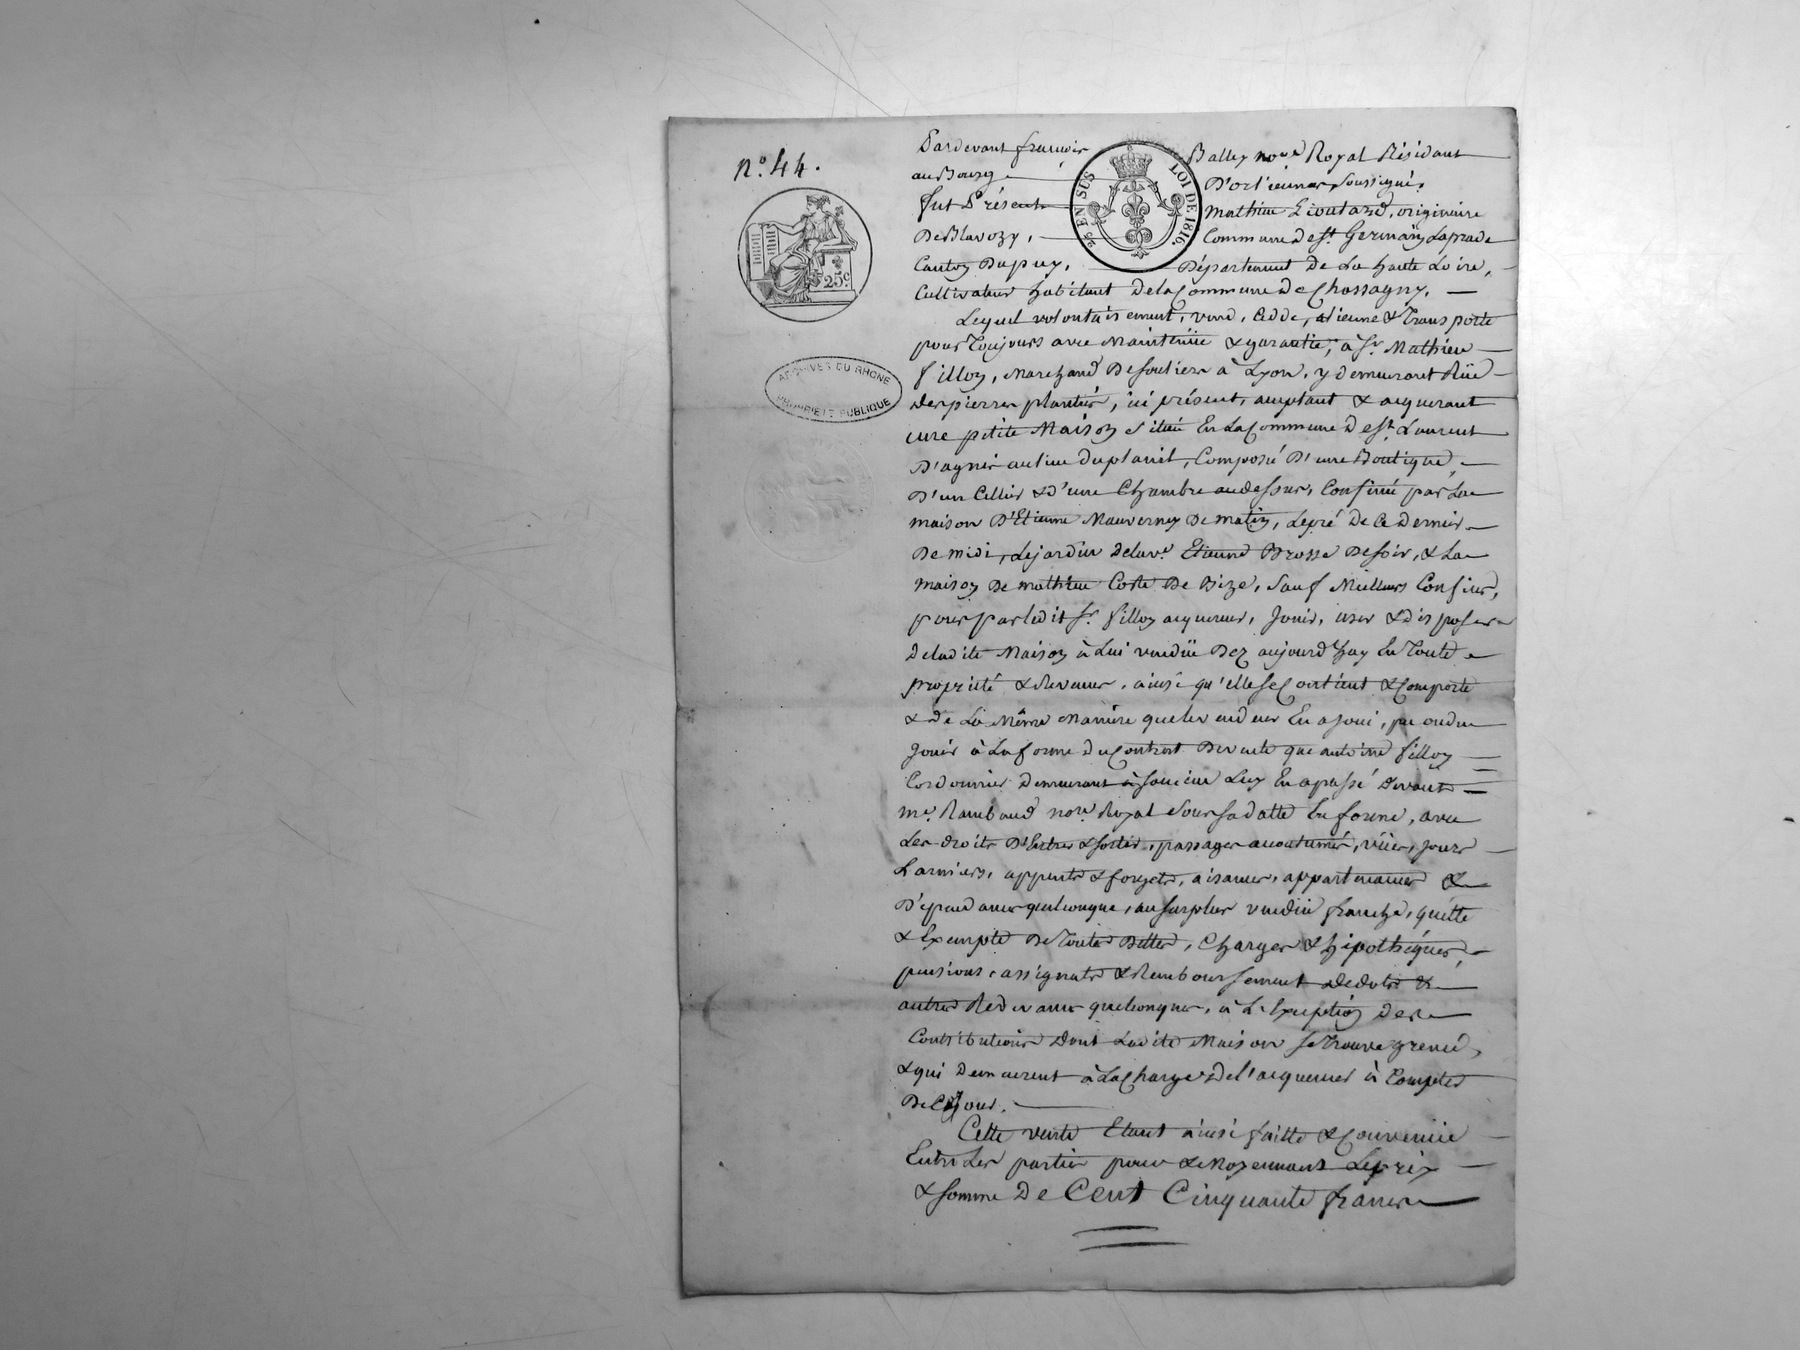 N.º 44.
25 EN SUS
LOI DE 1816.
25.C
ARCHIVES DU RHONE
PROPRIETE PUBLIQUE
Pardevant françois Balley no.re Royal Résidant
au Bourg D'orliénas, soussigné,
fut Présent Mathieu Lioutard, originaire
De Blavozy, Commune de St Germain Laprade
Canton Dupuy, Département De La haute Loire,
Cultivateur habitant de la Commune De Chassagny,
Lequel volontairement, vend, Cedde, aliene & Transporte
pour Toujours avec Maintenüe & garantie, à Sr. Mathieu
fillon, Marchand De souliers à Lyon, y demeurant Rüe
des pierres plantées, ici présent, acceptant & acquerant
une petite Maison située En La Commune de St. Laurent
D'agnis au lieu du planil, Composée D'une Boutique,
D'un Cellier & D'une Chambre audessus, Confinée par La
maison D'Etienne Mauvernay De matin, Lepré De Ce dernier
De midi, Lejardin delave. Etienne Brosse De soir, & La
maison De mathieu Coste De Bize, Sauf Meilleurs Confins,
pour par ledit Sr. fillon acquereur, Jouir, user & disposer
deladite Maison à Lui vendüe Dez aujourd'huy En Toute
propriété & Revenus, ainsi qu'elle se Contient & Comporte
& de La Même Manière que le vendeur En a joui, pu ou du
Jouir à La forme du Contrat De vente que antoine fillon
Cordonnier demeurant à Soucieu Luy En a passé devant
me. Rambaud nore. Royal sous sa datte En forme, avec
Les droits D'Entrer & sortir, passages accoutumés, vües, jours
Larmiers, appents & forgets, aisances, appartenances &
Dépendances quelconque, au surplus vendüe franche, quitte
& Exempte De Toutes Dettes, Charges & hipothèques,
pensions, assignats & Remboursement de dots &
autres Redevances quelconques, à L'Exception des
Contributions dont Ladite Maison se trouve grevée,
& qui demeurent à La Charge de l'acquereur à Compter
De Ce jour.
Cette vente Etant ainsi faitte & Convenüe
Entre Les parties pour & Moyennant Le prix
& somme De Cent Cinquante francs